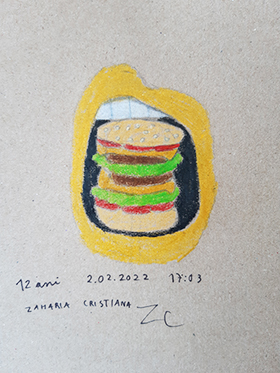 12 ani 2.02.2022 17:03
ZAHARIA CRISTIANA ZC